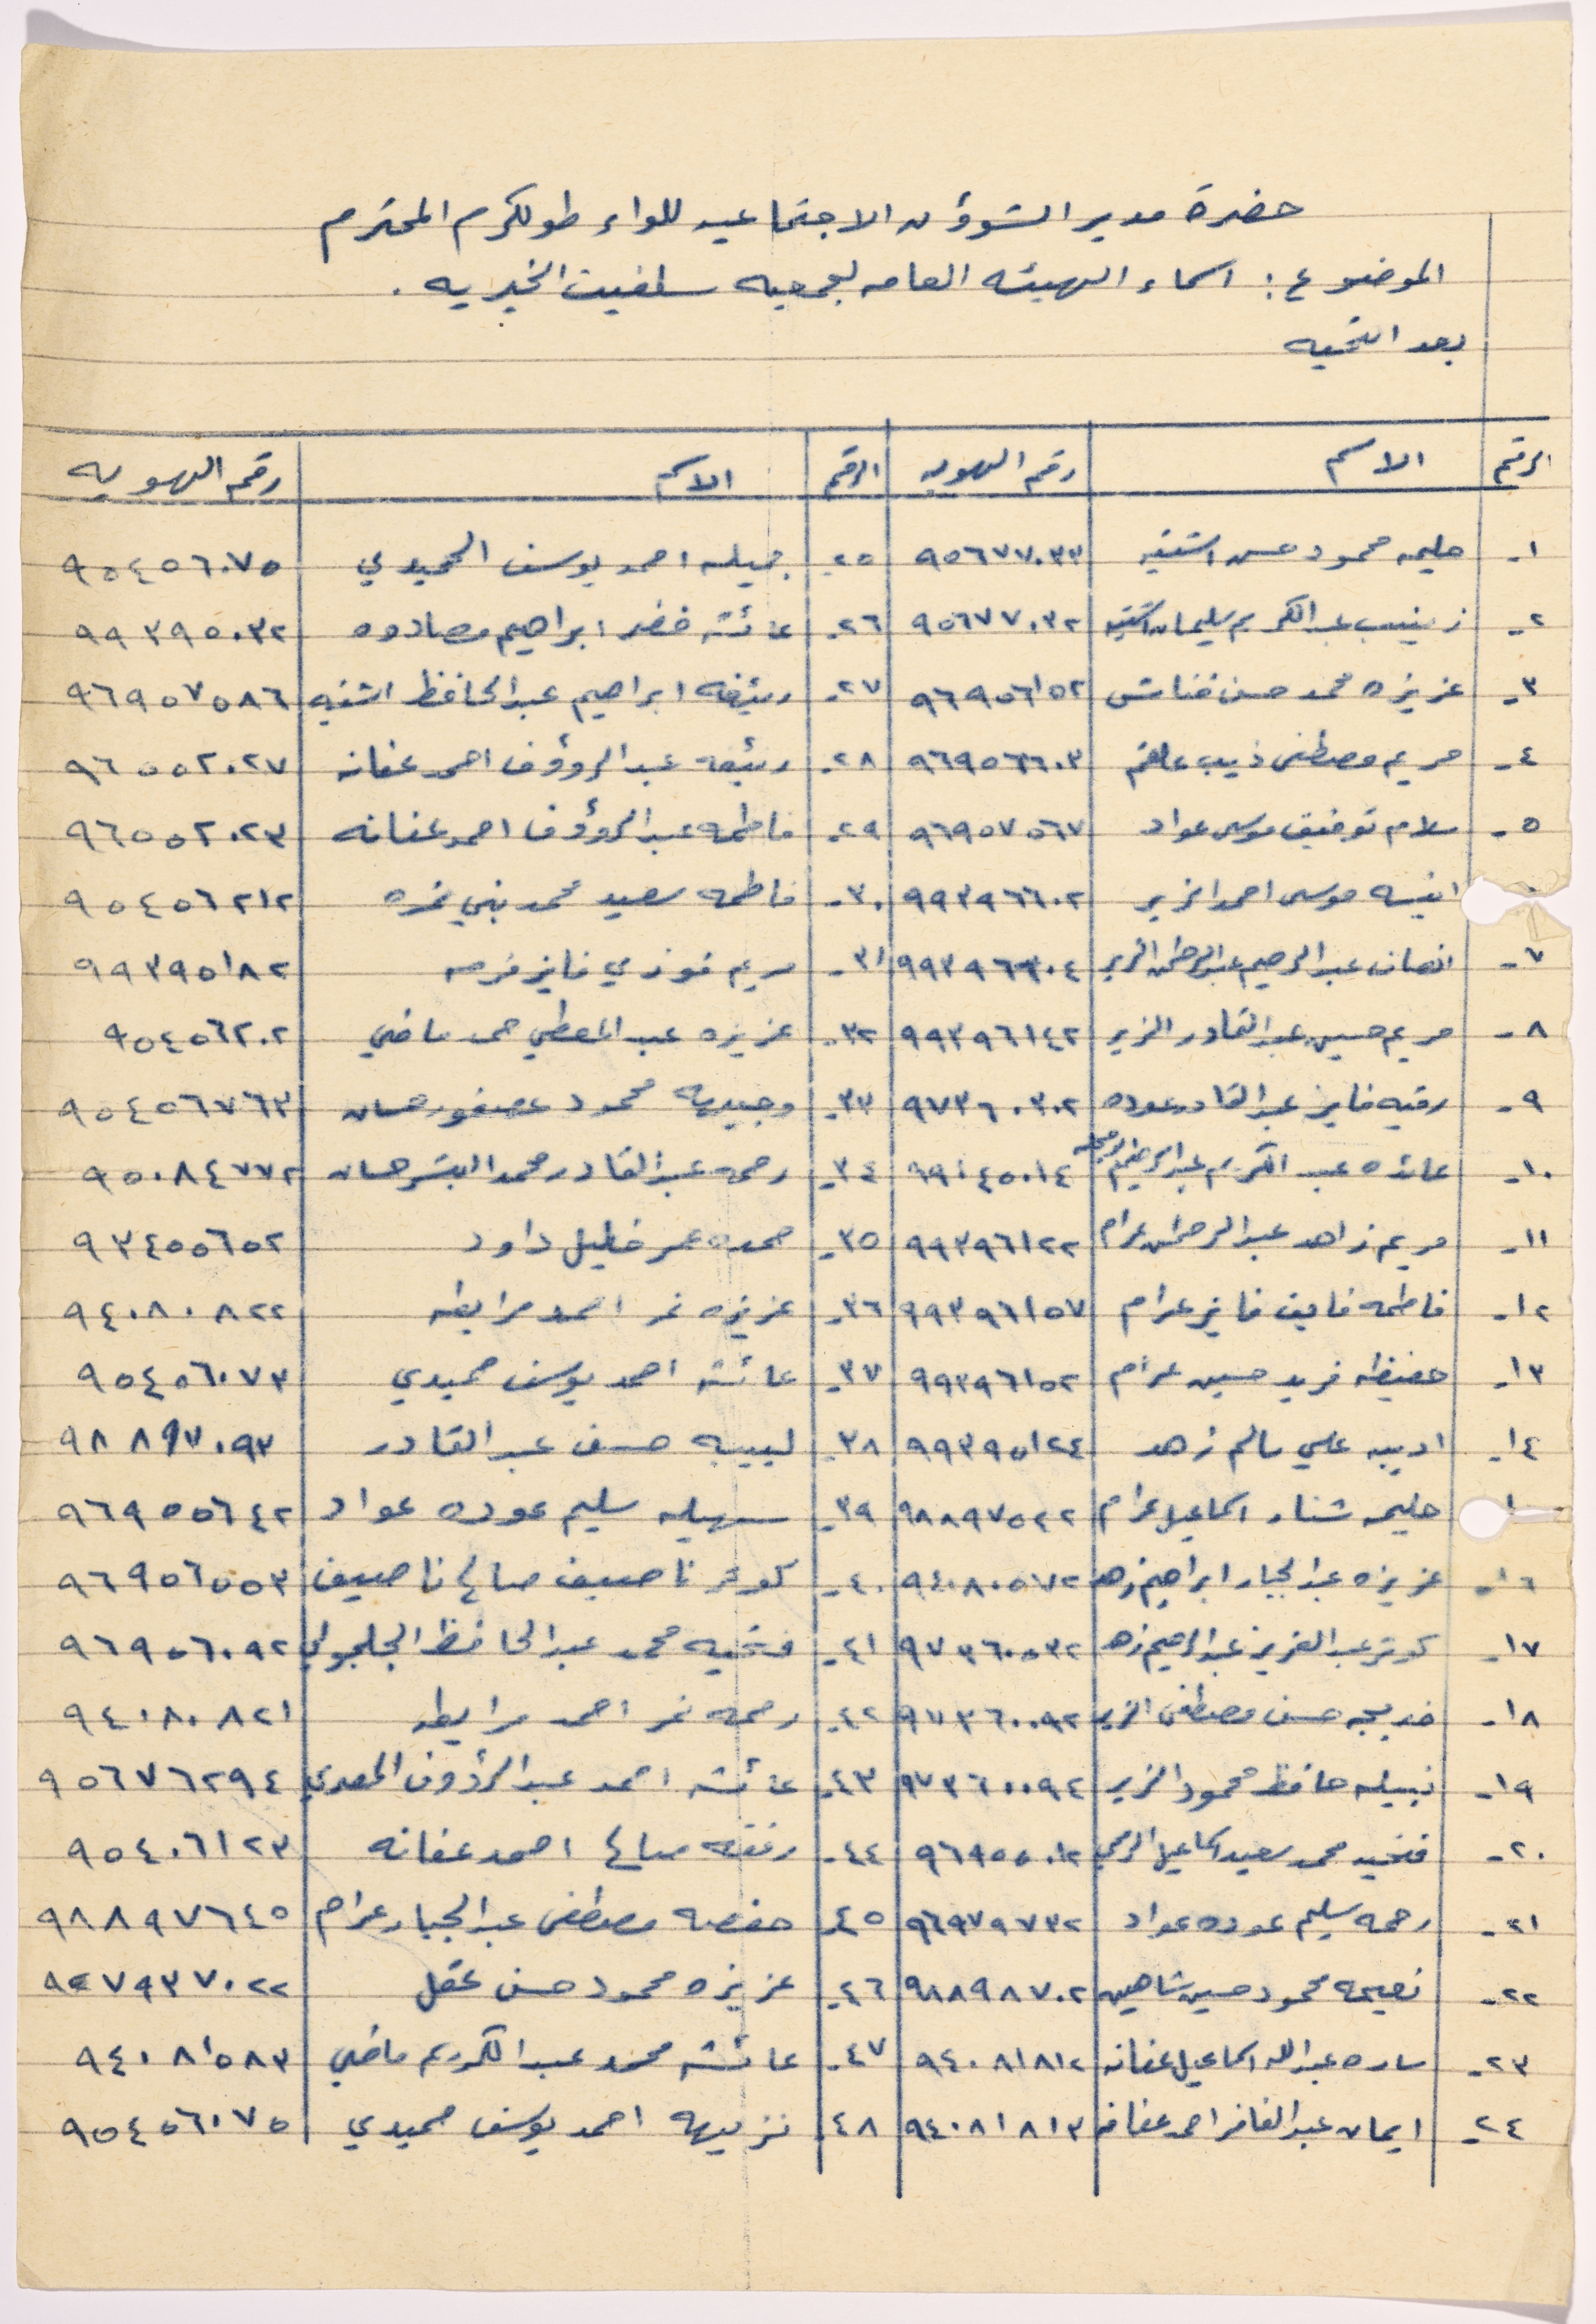 حضرة مدير الشؤون الاجتماعيه للواء طولكرم المحترم
الموضوع : اسماء الهيئه العامه لجمعيه سلفيت الخيريه .
بعد التحيه
الرقم الاسم رقم الهويه الرقم الاسم رقم الهويه
١- حليمه محمود حسن اشتيه ٩٥٦٧٧٠٣٣ ٢٥- جميله احمد يوسف الحميدي ٩٥٤٥٦٠٧٥
٢- زينب عبد الكريم سليمان اشتيه ٩٥٦٧٧٠٣٢ ٢٦- عائشه خضر ابراهيم مصادوه ٩٩٣٩٥٠٣٢
٣- عزيزه محمد حسن فناش ٩٦٩٥٦١٥٢ ٢٧- رئيفه ابراهيم عبد الحافظ اشتيه ٩٦٩٥٧٥٨٦
٤- مريم مصطفى ذيب علقم ٩٦٩٥٦٦٠٣ ٢٨- رئيفه عبد الرؤوف احمد عفانه ٩٦٥٥٢٠٢٧
٥- سلام توفيق موسى عواد ٩٦٩٥٧٥٦٧ ٢٩- فاطمه عبد الرؤوف احمد عفانه ٩٦٥٥٢٠٢٣
انيسه موسى احمد الزير ٩٩٣٩٦٦٠٢ ٣٠- فاطمه سعيد محمد بني نمره ٩٥٤٥٦٢١٢
٧- انصاف عبد الرحيم عبد الرحمن الزير ٩٩٣٩٦٣٠٤ ٣١- مريم فوزي فايز فرحه ٩٩٣٩٥١٨٢
٨- مريم حسين عبد القادر الزير ٩٩٣٩٦١٤٢ ٣٢- عزيزه عبد المعطي حمد ماضي ٩٥٤٥٦٢٠٢
٩- رقيه فايز عبد القادر عوده ٩٧٣٦٠٣٠٢ ٣٣- وجيهه محمود عصفور حسان ٩٥٤٥٦٧٦٣
١٠- عائده عبد الكريم عبد الرحيم ٩٩٠٤٥٠١٤ ٣٤- رحمه عبد القادر محمد البشر حسان ٩٥٠٨٤٧٧٢
١١- مريم زاهد عبد الرحمن عرام ٩٩٣٩٦١٢٢ ٣٥- حمده عمر خليل داود ٩٣٤٥٥٦٥٢
١٢- فاطمه فايق فايز عرام ٩٩٣٩٦١٥٧ ٣٦- عزيزه نمر احمد مرايطه ٩٤٠٨٠٨٢٢
١٣- حفيظه فريد حسين عرام ٩٩٣٩٦١٥٢ ٣٧- عائشه احمد يوسف حميدي ٩٥٤٥٦٠٧٣
١٤- اديبه علي سالم زهد ٩٩٣٩٥١٢٤ ٣٨- لبيبه حسن عبد القادر ٩٨٨٩٧٠٩٣
حليمه شنار اسماعيل عرام ٩٨٨٩٧٥٢٢ ٣٩- سهيله سليم عوده عواد ٩٦٩٥٥٦٤٢
١٦- عزيزه عبد الجبار ابراهيم زهد ٩٤٠٨٠٥٧٢ ٤٠- كوثر ناصيف صالح ناصيف ٩٦٩٥٦٥٥٣
١٧- كوثر عبد العزيز عبد الرحيم زهد ٩٧٣٦٠٥٣٢ ٤١- فتحيه محمد عبد الحافظ الجلجولي ٩٦٩٥٦٠٩٢
١٨- خديجه حسن مصطفى الزير ٩٧٣٦٠٠٩٢ ٤٢- رحمه نمر احمد مرايطه ٩٤٠٨٠٨٢١
١٩- نبيله حافظ محمود الزير ٩٧٣٦٠٠٩٤ ٤٣- عائشه احمد عبد الرؤوف المصري ٩٥٦٧٦٢٩٤
٢٠- فتحيه محمد سعيد اسماعيل ٩٦٩٥٥٠١٢ ٤٤- رفقه صالح احمد عفانه ٩٥٤٠٦١٢٣
٢١- رحمه سليم عوده عواد ٩٦٩٧٩٧٣٢ ٤٥- حفصه مصطفى عبد الجبار عرام ٩٨٨٩٧٦٤٥
٢٢- نعيمه محمود حسين شاهين ٩٨٨٩٨٧٠٢ ٤٦- عزيزه محمود حسن عقل ٩٤٧٩٣٧٠٢٢
٢٣- ساره عبدالله اسماعيل عفانه ٩٤٠٨١٨١٢ ٤٧- عائشه محمد عبد الكريم ماضي ٩٤٠٨١٥٨٣
٢٤- ايمان عبد الغافر احمد عفانه ٩٤٠٨١٨١٣ ٤٨ نزيهه احمد يوسف حميدي ٩٥٤٥٦٠٧٥